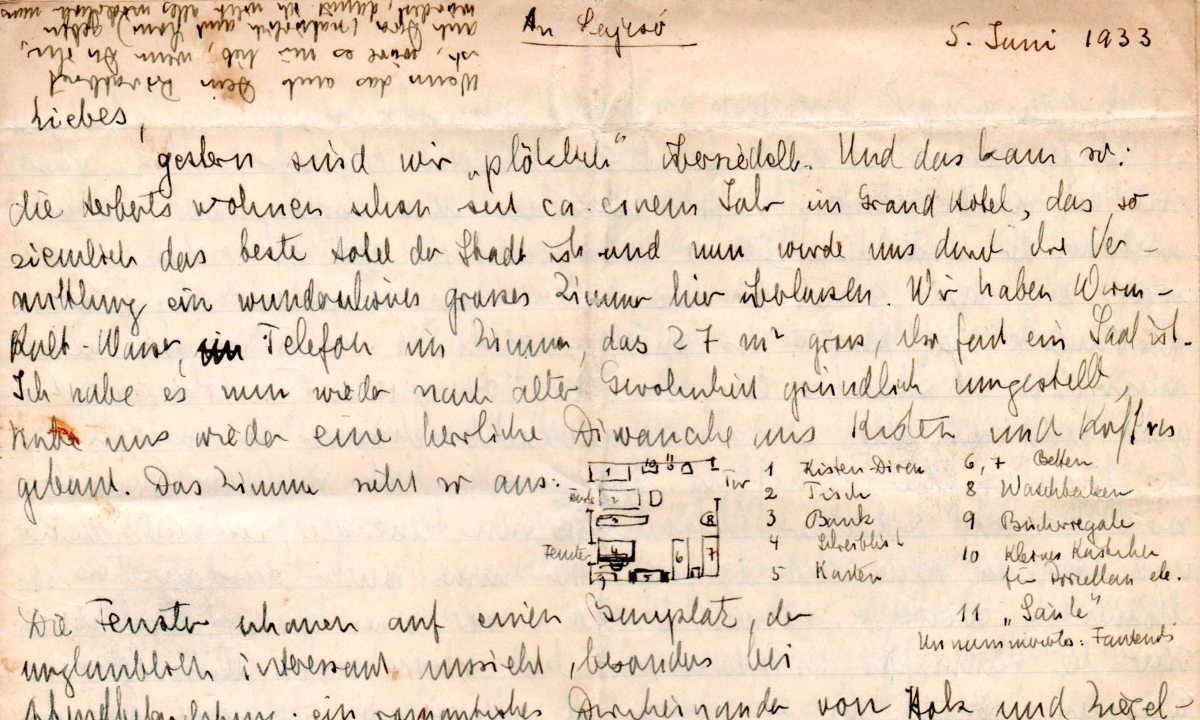 An
5. Juni 1933
Wenn das auch Dein
ist, wäre es mir lieb, wenn Du ihn,
auch Dora (natürlich auch Hans) geben
würdest, damit ich nicht alles
Liebes,
gestern sind wir „plötzlich" übersiedelt. Und das kam so:
die Herberts wohnen schon seit ca einem Jahr im Grand Hotel, das so
ziemlich das beste Hotel der Stadt ist und nun wurde uns durch ihre Ver-
mittlung ein wunderschönes grosses Zimmer hier überlassen. Wir haben Warm-
Kalt-Wasser, Telefon im Zimmer, das 27 m² gross, also fast ein Saal ist.
Ich habe es nun wieder nach alter Gewohnheit gründlich umgestellt,
habe uns wieder eine herrliche Diwanecke aus Kisten und Koffern
gebaut. Das Zimmer sieht so aus:
Tür
Fenster
1 Kisten-Divan
2 Tisch
3 Bank
4 Schreibtisch
5 Kasten
6, 7 Betten
8 Waschbecken
9 Bücherregale
10 kleines Kästchen
für Porzellan etc.
11 „Säule"
Unnummerierte: Fauteuils
Die Fenster schauen auf einen Bauplatz, der
unglaublich interessant aussieht, besonders bei
Abendbeleuchtung: ein romantisches Durcheinander von Holz und Ziegel-